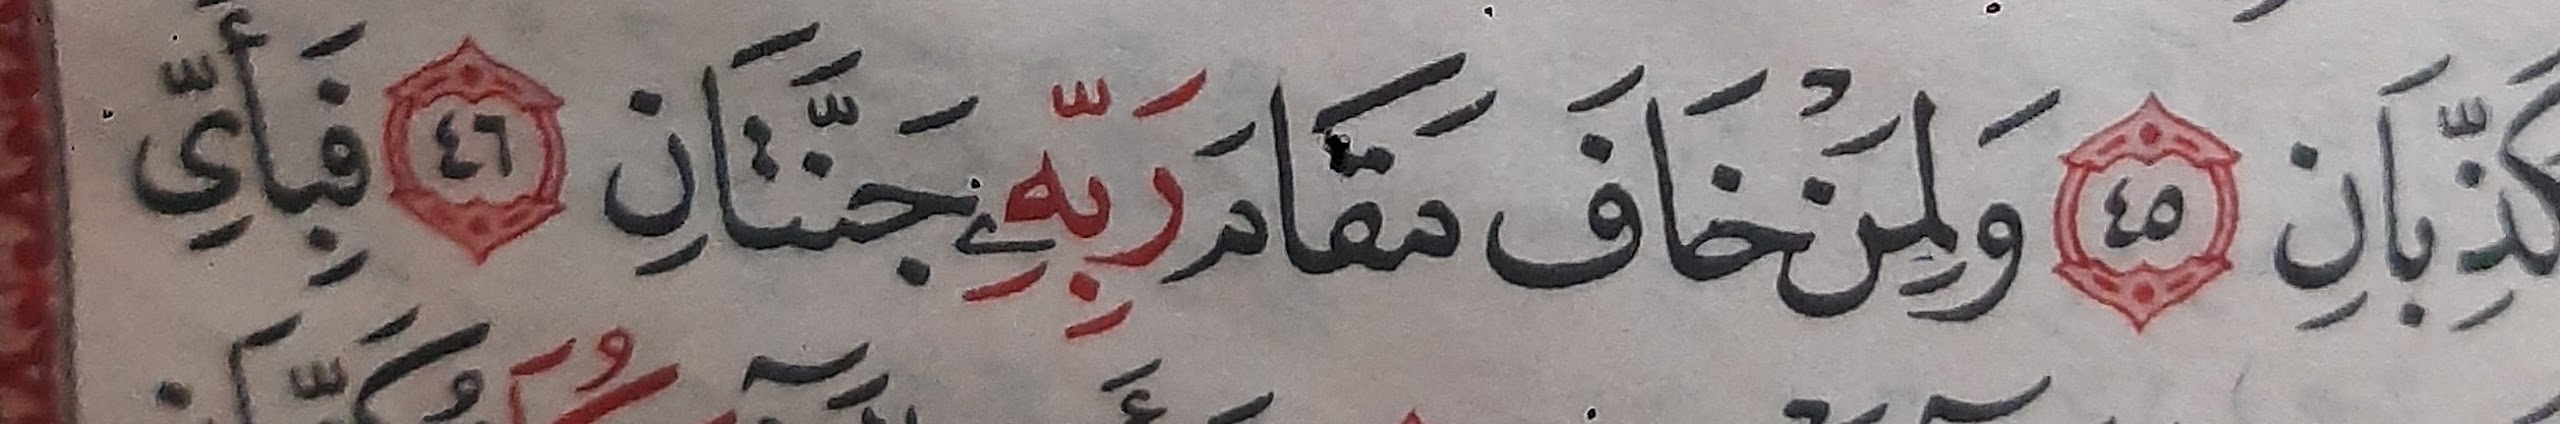 كَذِّبَانِ ٤٥ وَلِمَنْ خَافَ مَقَامَ رَبِّهِۦ جَنَّتَانِ ٤٦ فَبِأَيِّ